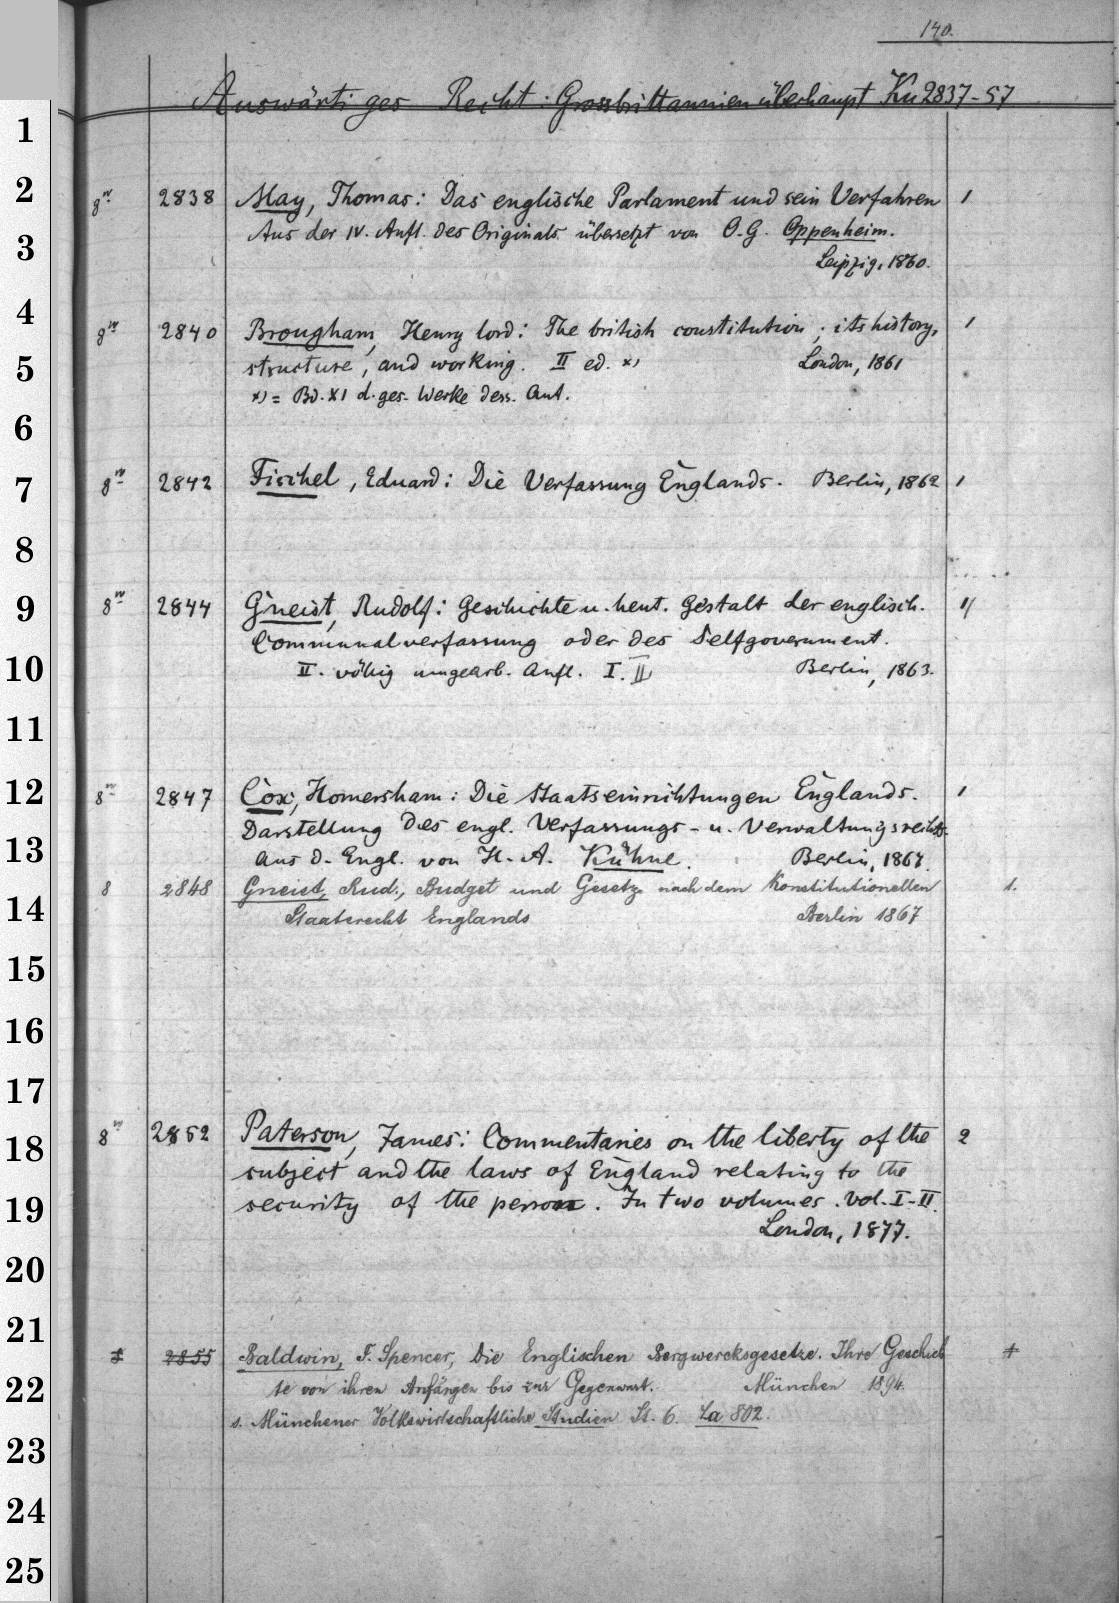 140.
Auswärtiges Recht: Grossbrittannien überhaupt Ku 2837-57
1
2 8vo 2838 May, Thomas: Das englische Parlament und sein Verfahren 1
3 Aus der IV. Aufl. des Originals übersetzt von O.G. Oppenheim.
Leipzig, 1860.
4 8vo 2840 Brougham, Henry lord: The british constitution, its history, 1
5 structure, and working. II ed. x) London, 1861
x) = Bd. XI d. ges. Werke dess. Aut.
6
7 8vo 2842 Fischel, Eduard: Die Verfassung Englands. Berlin, 1862 1
8
9 8vo 2844 Gneist, Rudolf: Geschichte u. heut. Gestalt der englisch. 1/
Communalverfassung oder des Selfgovernment.
10 II. völlig umgearb. Aufl. I. II Berlin, 1863.
11
12 8vo 2847 Cox, Homersham: Die Staatseinrichtungen Englands. 1
Darstellung des engl. Verfassungs- u. Verwaltungsrechts.
13 Aus d. Engl. von H. A. Kühne. Berlin, 1867.
8 2848 Gneist, Rud., Budget und Gesetz nach dem Konstitutionellen 1.
14 Staatsrecht Englands Berlin 1867
15
16
17
18 8vo 2852 Paterson, James: Commentaries on the liberty of the 2
subject and the laws of England relating to the
19 security of the person. In two volumes. Vol. I-II.
London, 1877.
20
21
8 2855 Baldwin, F. Spencer, Die Englischen Bergwercksgesetze. Ihre Geschich 1
22 te von ihren Anfängen bis zur Gegenwart. München 1894.
s. Münchener Volkswirtschaftliche Studien St. 6. La 802.
23
24
25